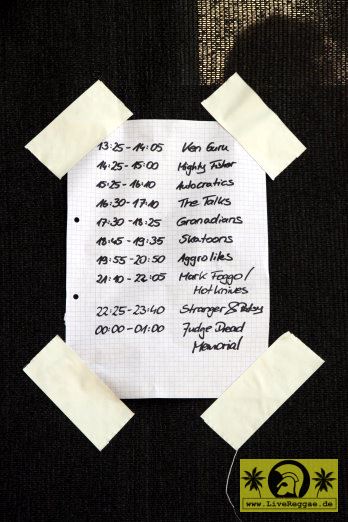 13:25 - 14:05 Ken Guru
14:25 - 15:00 Mighty Fisher
15:25 - 16:10 Autocratics
16:30 - 17:10 The Talks
17:30 - 18:25 Granadians
18:45 - 19:35 Skatoons
19:55 - 20:50 Aggrolites
21:10 - 22:05 Mark Foggo/
Hotknives
22:25 - 23:40 Stranger & Patsy
00:00 - 01:00 Judge Dread
Memorial
www.LiveReggae.de